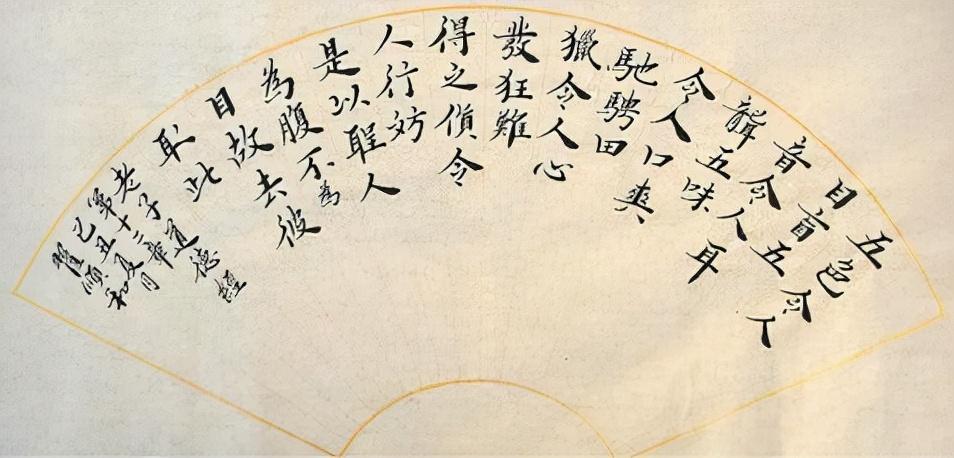 五色令人
目盲五
音令人耳
聾五味
令人口爽
馳騁田
獵令人心
發狂難
得之貨令
人行妨
是以聖人
為腹不為
目故去彼
取此
老子道德經
第十二章
己丑夏月
瞿順和